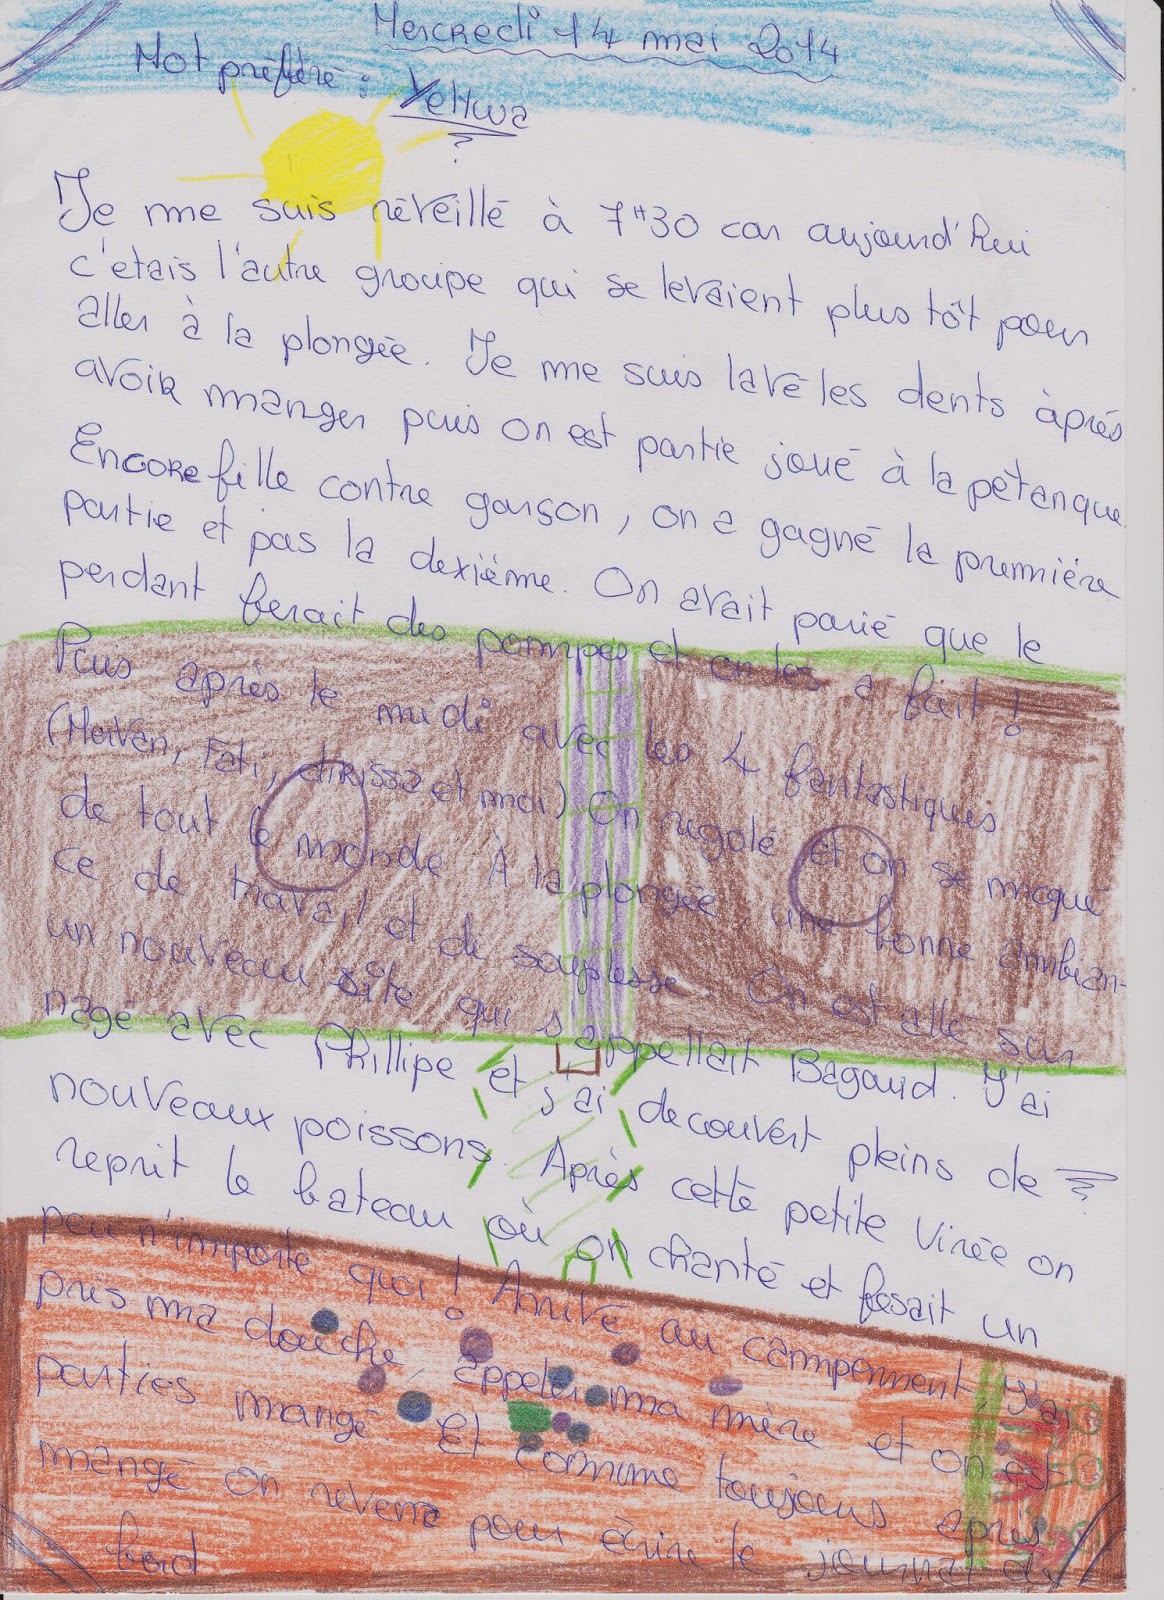 Mercredi 14 mai 2014
Mot préféré : Yellwa
Je me suis réveillé à 7H30 car aujourd'hui
c'etais l'autre groupe qui se levaient plus tôt pour
aller à la plongée. Je me suis lavé les dents àprés
avoir manger puis on est partie joué à la pétanque.
Encore fille contre garson, on a gagné la premmiére
partie et pas la dexiéme. On avait parié que le
perdant ferait des pompes et on les a fait !
Puis aprés le midi avec les 4 fantastiques
(Mervan, Fati, drissa et moi) On rigolé et on se moqué
de tout le monde. À la plongée, une bonne ambian-
ce de travail et de souplesse. On est allé sur
un nouveau site qui s'appellait Bagaud. J'ai
nagé avec Phillipe et j'ai decouvert pleins de
nouveaux poissons. Aprés cette petite virée on
reprit le bateau où on chanté et fesait un
peu n'importe quoi ! Arrivé au campemment, j'ai
pris ma douche, appeler ma mère et on est
parties mangé. Et comme toujours aprés
mangé on revena pour écrire le journal de
bord